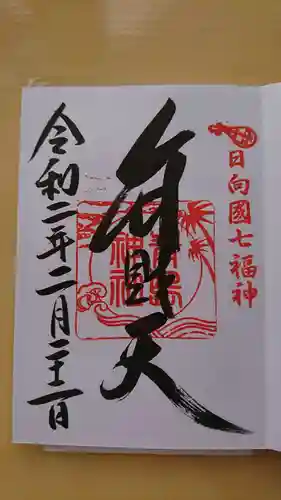 日向國七福神
弁財天
青島
神社
令和二年二月二十一日